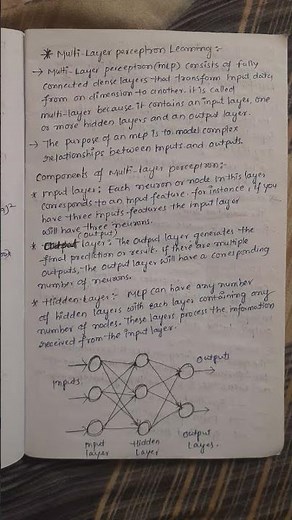 * Multi-Layer perceptron Learning :-
→ Multi-Layer perceptron (MLP) consists of fully
connected dense layers that transform input data
from on dimension to another. it is called
multi-layer because it contains an input layer, one
or more hidden layers and an output layer.
→ The purpose of an MLP is to model complex
relationships between inputs and outputs.
Components of Multi-layer perceptron:-
* Input layer: Each neuron or node in this layer
corresponds to an input feature. for instance, if you
have three inputs-features the input layer
will have three neurons.
* output layer: The output layer generates the
final prediction or result. if there are multiple
outputs, the output layer will have a coresponding
number of neurons.
* Hidden Layer:- MLP can have any number
of hidden layers with each layer containing any
number of nodes. These layers process the information
received from the input layer.
Inputs
Outputs
Input layer
Hidden Layer
output Layer.